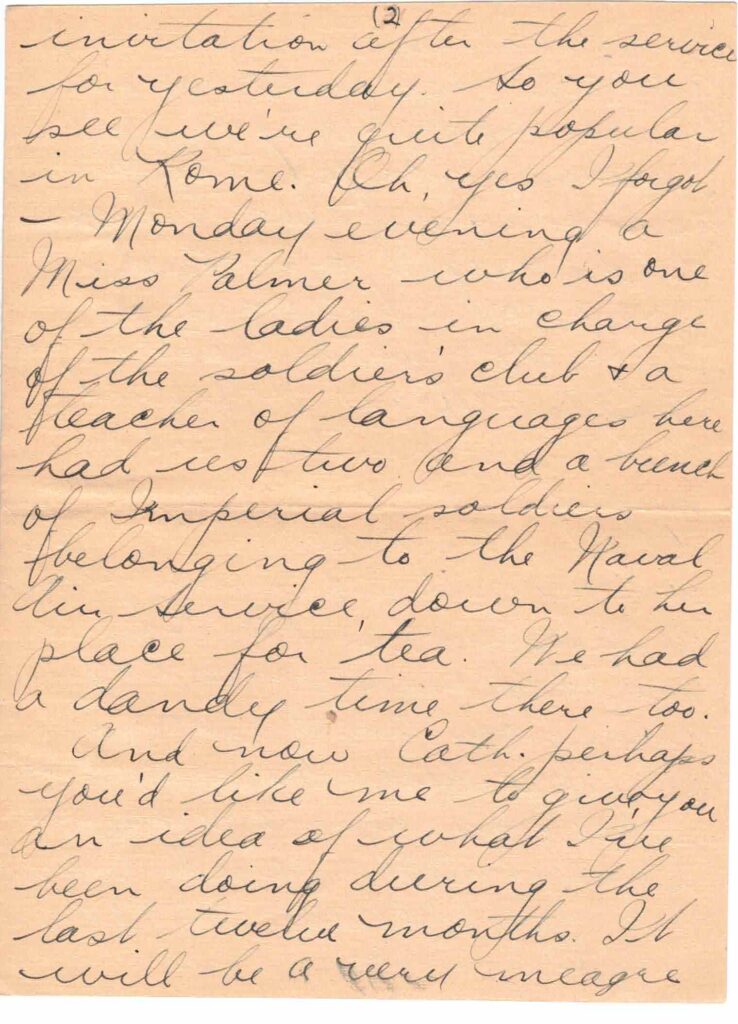 (2)
invitation after the service
for yesterday. So you
see we're quite popular
in Rome. Oh, yes I forgot
- Monday evening a
Miss Palmer who is one
of the ladies in charge
of the soldier's club & a
teacher of languages here
had us two and a bunch
of Imperial soldiers
belonging to the Naval
Air Service, down to her
place for tea. We had
a dandy time there too.
And now Cath. perhaps
you'd like me to give you
an idea of what I've
been doing during the
last twelve months. It
will be a very meagre